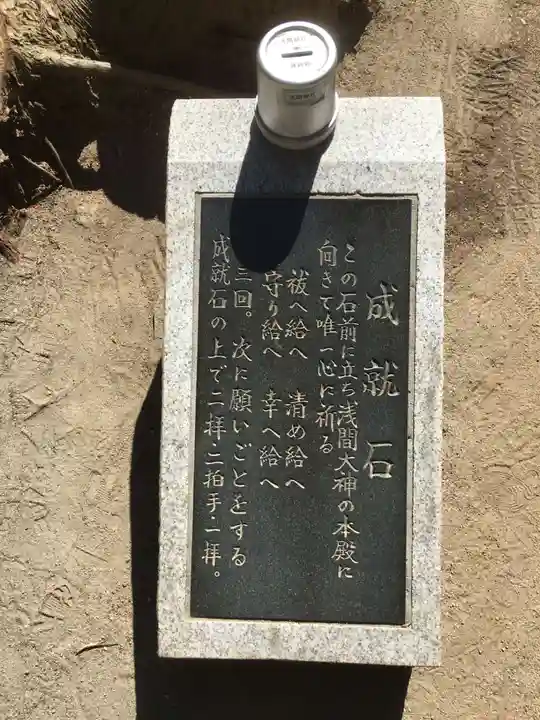 成就石
この石前に立ち浅間大神の本殿に
向きて唯一心に祈る
祓へ給へ 清め給へ
守り給へ 幸へ給へ
三回。次に願いごとをする
成就石の上で二拝二拍手一拝。